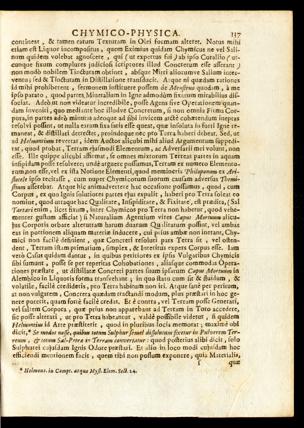 CHYMICO-PHYSICA. 137
continent, & tamen eatura Texturam in Oleri formam alteret. Notus mihi
etiam est Liquor incompositus, quem Eximius quidam Chymicus ne vel Sali-
num quidem volebat agnoscere, qui (ut expertus fui) ab ipso Corallio (ut-
cunque suum complures judiciosi scriptores illud Concretum esse asserant)
non modo nobilem Tincturam obtinet, absque Nitri aliorumve Salium inter-
ventu; sed & Tincturam in Distillatione transducit. Atque ni quædam rationes
id mihi prohiberent, sermonem instituere possem de Menstruo quodam, à me
ipso parato, quod partes Mineralium in Igne admodum fixarum mirabiliter dis-
sociat. Adeò ut non videatur incredibile, posse Agens sive Operationem quan-
dam inveniri, quo mediante hoc illudve Concretum, si non omnia Firma Cor-
pora, in partes adeò minutas adeoque ad sibi invicem arctè cohærendum ineptas
resolvi possint, ut nulla earum fixa satis esse queat, quæ insoluta in fundo Igne re-
maneat, & distillari detrectet, proindeque ut pro Terra haberi debeat. Sed, ut
ad Helmontium revertar, idem Auctor alicubi mihi aliud Argumentum suppedi-
tat, quod probat, Terram ejusmodi Elementum, ac Adversarii mei volunt, non
esse. Ille quippe alicubi affirmat, se omnes mitiorum Terreas partes in aquam
insipidam posse resolvere; unde arguere possumus, Terram ex numero Elemento-
rum non esse, vel ex ista Notione Elementi, quod memineris Philoponum ex Ari-
stotele ipso recitasse, cum nuper Chymicorum suorum causam adversus Themi-
stium assereret. Atque hic animadvertere hac occasione possumus, quod, cum
Corpus, ex quo Ignis solutiores partes ejus expulit, haberi pro Terra soleat eo
nomine, quod utraque hac Qualitate, Insipiditate, & Fixitate, sit prædita, (Sal
Tartari enim, licet fixum, inter Chymicos pro Terra non habetur, quod vehe-
menter gustum afficiat) si Naturalium Agentium vires Capus Mortuum alicu-
jus Corporis orbare alterutrarum harum duarum Qualitatum possint, vel ambas
eas in portionem aliquam materiæ inducere, cui prius ambæ non inerant, Chy-
mici non facilè definient, quæ Concreti resoluti pars Terra sit, vel osten-
dent, Terram istam primarium, simplex, & Interitus expers Corpus esse. Jam
verò Casus quidam dantur, in quibus peritiores ex ipsis Vulgaribus Chymicis
sibi sumant, posse se per repetitas Cohobationes, aliasque commodas Opera-
tiones præstare, ut distillatæ Concreti partes suum ipsarum Caput Mortuum in
Alembico in Liquoris formâ transferant, in quo statu cum sit & fluidum, &
volatile, facilè credideris, pro Terra habitum non iri. Atque sanè per peritum,
at non vulgarem, Concreta quædam tractandi modum, plus præstari in hoc ge-
nere potest, quam facilè credat. Et è contra, vel Terram posse Generari,
vel saltem Corpora, quæ prius non apparebant ad Terram in Toto accedere,
sic posse alterari, ut pro Terra habeantur, valdè possibile videtur, si quidem
Helmontius id Arte præstiterit, quod in pluribus locis memorat; maximè ubi
dicit, * Se modos nosse, quibus totum Sulphur semel dissolutum fixetur in Pulverem Ter-
reum, & totum Sal-Petræ in Terram convertatur: quod posterius alibi dicit, solo
Sulphurei cujusdam Ignis Odore præstari. Et alio in loco modi cujusdam hoc
efficiendi mentionem facit, quem tibi non possum exponere, quia Materialia,
S quæ
* Helmont. in Compl. atque Myst. Elem. Sect. 24.